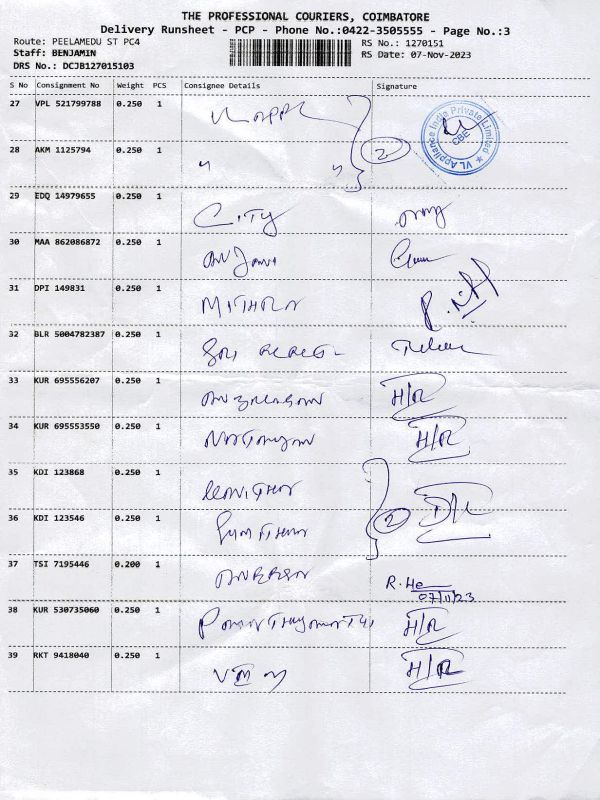 THE PROFESSIONAL COURIERS, COIMBATORE
Delivery Runsheet - PCP - Phone No.:0422-3505555 - Page No.:3
Route: PEELAMEDU ST PC4 RS No.: 1270151
Staff: BENJAMIN RS Date: 07-Nov-2023
DRS No.: DCJB127015103
S No Consignment No Weight PCS Consignee Details Signature
27 VPL 521799788 0.250 1
VL Appliance India Private Limited CBE
28 AKM 1125794 0.250 1 " " 2
29 EDQ 14979655 0.250 1 CITY
30 MAA 862086872 0.250 1
31 DPI 149831 0.250 1
32 BLR 5004782387 0.250 1
33 KUR 695556207 0.250 1 H/R
34 KUR 695553550 0.250 1 H/R
35 KDI 123868 0.250 1
36 KDI 123546 0.250 1 2
37 TSI 7195446 0.200 1 R.He
07/11/23
38 KUR 530735060 0.250 1 H/R
39 RKT 9418040 0.250 1 H/R